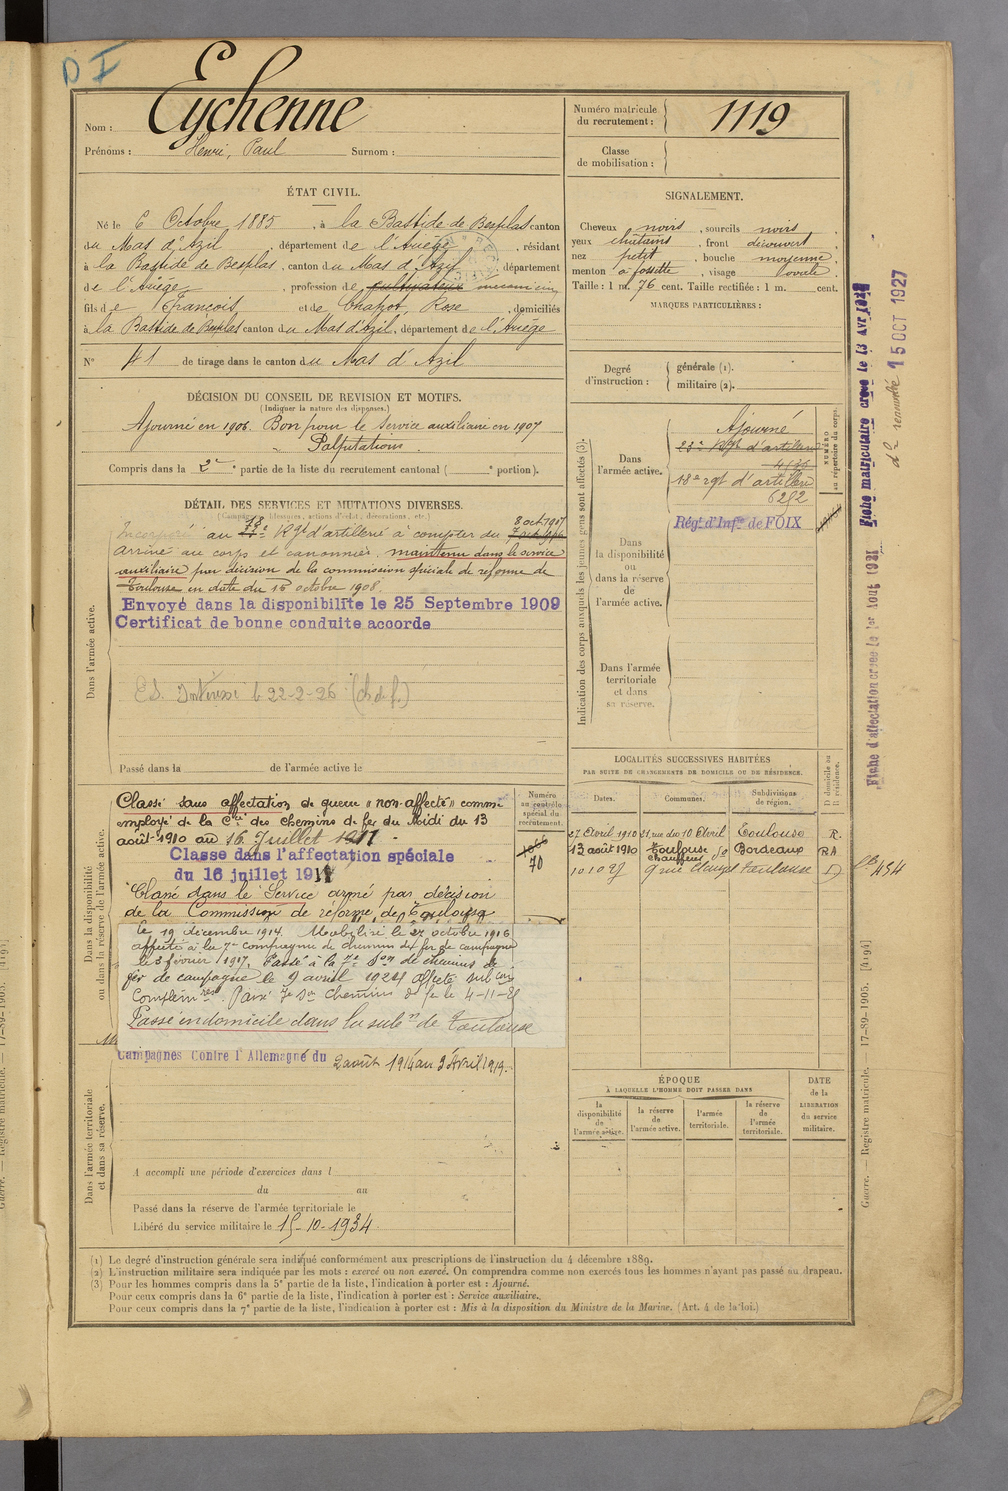 D I
Nom : Eychenne
Prénoms : Henri, Paul Surnom :
Numéro matricule du recrutement : 1119
Classe de mobilisation :
ÉTAT CIVIL.
Né le 6 Octobre 1885, à la Bastide de Besplas canton
du Mas d'Azil, département de l'Ariège, résidant
à la Bastide de Besplas, canton du Mas d'Azil, département
de l'Ariège, profession de cultivateur mécanicien
fils de François et de Chapot, Rose, domiciliés
à la Bastide de Besplas canton du Mas d'Azil, département de l'Ariège
N° 41 de tirage dans le canton du Mas d'Azil
SIGNALEMENT.
Cheveux noirs, sourcils noirs
yeux chatains, front découvert
nez petit, bouche moyenne
menton à fossette, visage ovale
Taille : 1 m. 76 cent. Taille rectifiée : 1 m. cent.
MARQUES PARTICULIÈRES :
Degré d'instruction : générale (1).
militaire (2).
DÉCISION DU CONSEIL DE REVISION ET MOTIFS.
(Indiquer la nature des dispenses.)
Ajourné en 1906. Bon pour le Service auxiliaire en 1907
Palpitations.
Compris dans la 2e partie de la liste du recrutement cantonal ( portion).
DÉTAIL DES SERVICES ET MUTATIONS DIVERSES.
(Campagnes, blessures, actions d'éclat, décorations, etc.)
Dans l'armée active.
Incorporé au 18e Rgt d'artillerie à compter du 8 oct 1907
Arrivé au corps et canonnier. maintenu dans le service
auxiliaire par décision de la commission spéciale de réforme de
Toulouse en date du 15 octobre 1908.
Envoyé dans la disponibilite le 25 Septembre 1909
Certificat de bonne conduite accorde
Ed. Intéressé le 22-2-26 (ch de f.)
Passé dans la de l'armée active le
Indication des corps auxquels les jeunes gens sont affectés (3).
NUMÉRO au répertoire du corps.
Dans l'armée active.
Ajourné
23e Rgt d'artillerie
18e rgt d'artillerie
6292
Dans la disponibilité ou dans la réserve de l'armée active.
Régt d'Infie de FOIX
Dans l'armée territoriale et dans sa réserve.
Fiche matriculaire créée le 13 AVR
d° renvoyée 15 OCT 1927
Fiche d'affectation créée le 1er Août 1931
Dans la disponibilité ou dans la réserve de l'armée active.
Numéro au contrôle spécial du recrutement.
70
Classé sans affectation de guerre "non-affecté" comme
employé de la Cie des chemins de fer du Midi du 13
août 1910 au 16 Juillet 1911.
Classe dans l'affectation spéciale
du 16 juillet 1911
Classé dans le Service armé par décision
de la Commission de réforme de Toulouse
le 19 décembre 1914. Mobilisé le 27 octobre 1916
affecté à la 7e compagnie de chemin de fer de campagne
le 3 février 1917. Passé à la 7e Son de chemins de
fer de campagne le 9 avril 1924 affecté subon
Complémre. Passé 7e Son chemins de fer le 4-11-25
Passé en domicile dans la subon de Toulouse
Dans l'armée territoriale et dans sa réserve.
Campagnes Contre l'Allemagne du 2 août 1914 au 3 Avril 1919.
A accompli une période d'exercices dans l
du au
Passé dans la réserve de l'armée territoriale le
Libéré du service militaire le 15-10-1934
LOCALITÉS SUCCESSIVES HABITÉES
PAR SUITE DE CHANGEMENTS DE DOMICILE OU DE RÉSIDENCE.
Dates. Communes. Subdivisions de région. D domicile ou R résidence.
27 Avril 1910 21, rue du 10 Avril Toulouse R.
13 août 1910 Toulouse chauffeur Bordeaux RA
10.10.27 9 rue Clauzel Toulouse D
454
ÉPOQUE
À LAQUELLE L'HOMME DOIT PASSER DANS
la disponibilité de l'armée active.
la réserve de l'armée active.
l'armée territoriale.
la réserve de l'armée territoriale.
DATE de la LIBÉRATION du service militaire.
(1) Le degré d'instruction générale sera indiqué conformément aux prescriptions de l'instruction du 4 décembre 1889.
(2) L'instruction militaire sera indiquée par les mots : exercé ou non exercé. On comprendra comme non exercés tous les hommes n'ayant pas passé au drapeau.
(3) Pour les hommes compris dans la 5e partie de la liste, l'indication à porter est : Ajourné.
Pour ceux compris dans la 6e partie de la liste, l'indication à porter est : Service auxiliaire.
Pour ceux compris dans la 7e partie de la liste, l'indication à porter est : Mis à la disposition du Ministre de la Marine. (Art. 4 de la loi.)
Guerre. — Registre matricule. — 17-89-1905. [4194]